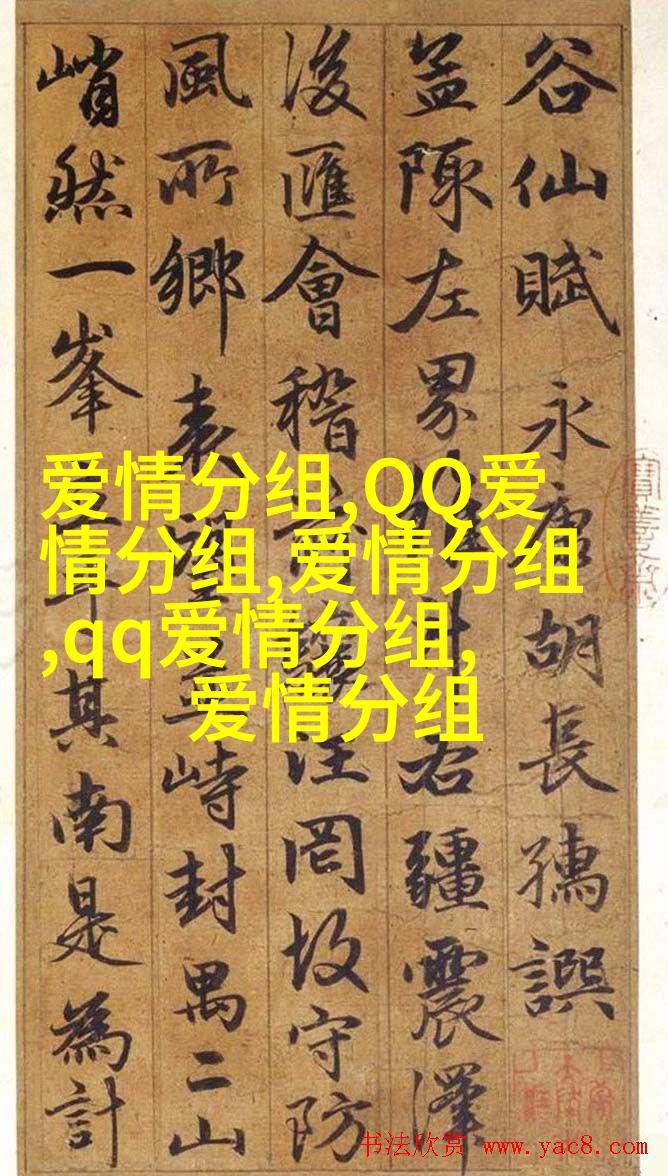 谷仙賦 永康胡長孺譔
盖陬左界右疆震澤
後匯會稽罔故守防
風所鄉表峙封禺二山
峭然一峯其南是為計
爱情分组,QQ爱
情分组,爱情分组
,qq爱情分组,
爱情分组
书法欣赏 www.yac8.com